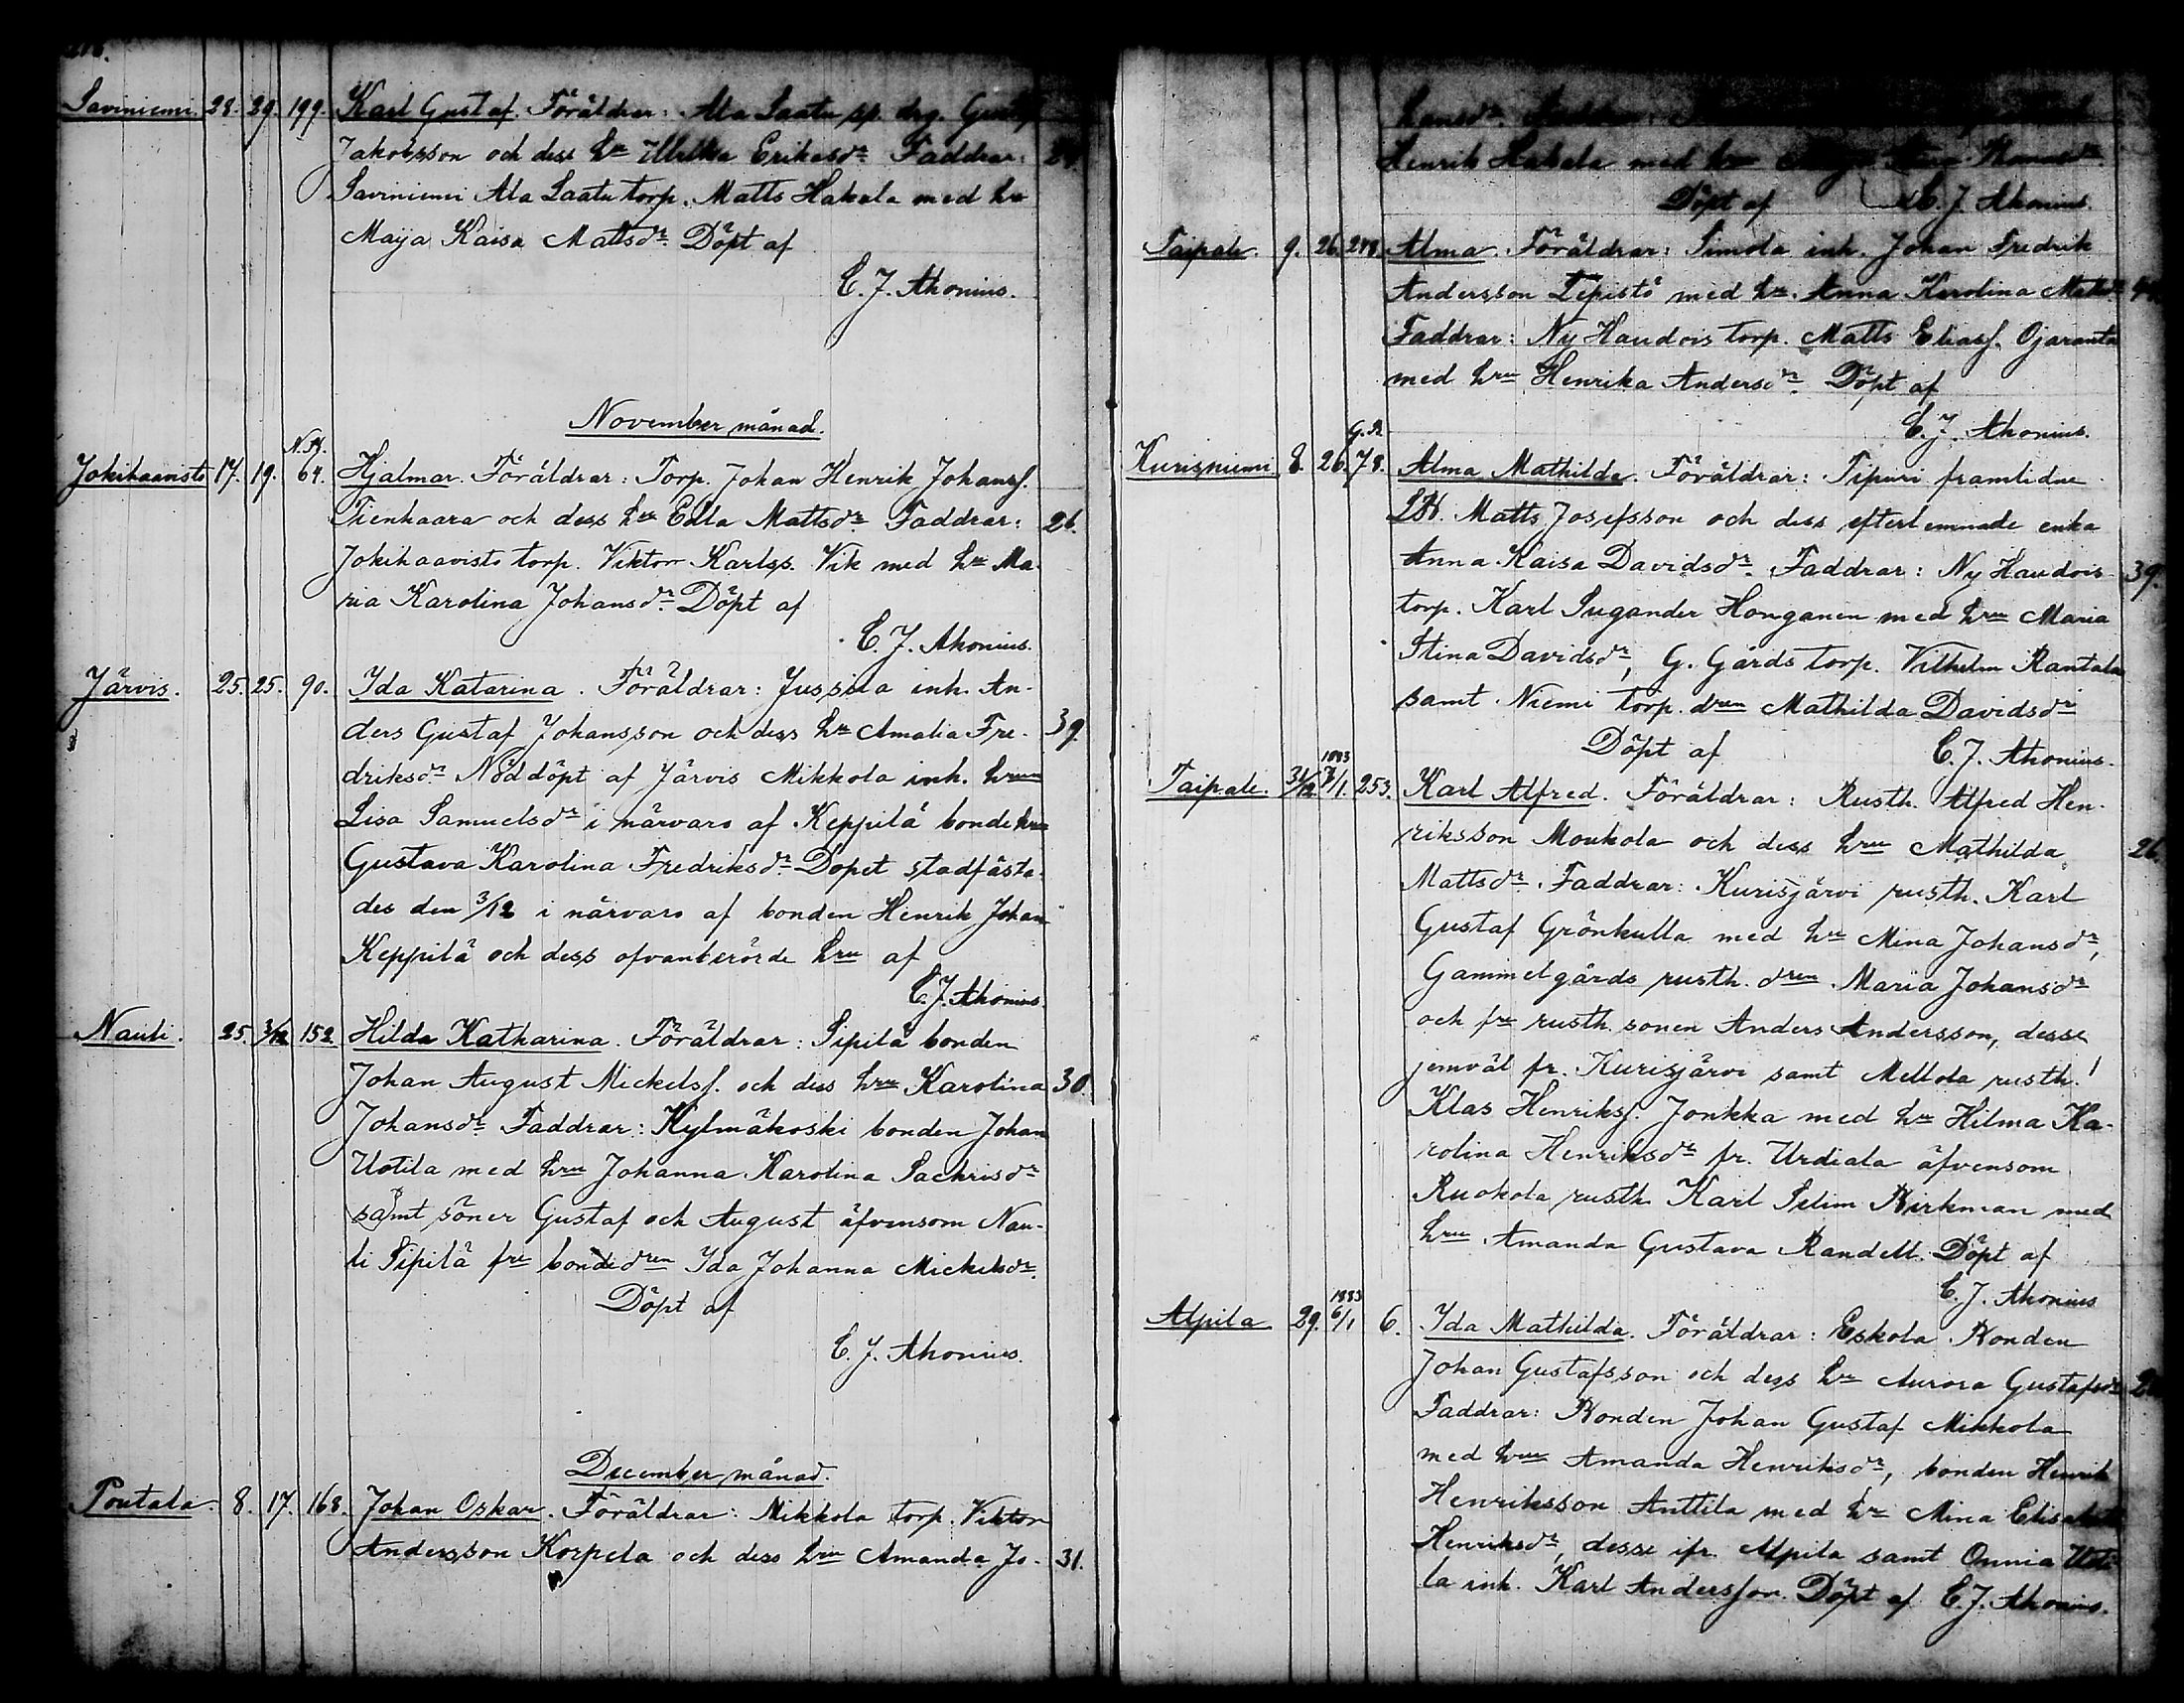 Saviniemi. 28. 29. 199. Karl Gustaf. Föräldrar: Ala Saatu sp. drg. Gustaf
Jakobsson och dess hu Ulrika Eriksdr Faddrar:
Saviniemi Ala Saatu torp. Matts Hakala med hu
Maija Kaisa Mattsdr Döpt af
C. J. Ahonius.
November månad.
N. H.
Jokihaavisto 17. 19. 64. Hjalmar. Föräldrar: Torp. Johan Henrik Johanss.
Tienhaara och dess hu Edla Mattsdr Faddrar: 26.
Jokihaavisto torp. Viktor Karlss. Vik med hu Ma-
ria Karolina Johansdr Döpt af
C. J. Ahonius.
Järvis. 25. 25. 90. Ida Katarina. Föräldrar: Jussila inh. An-
ders Gustaf Johansson och dess hu Amalia Fre- 39.
driksdr Nöddöpt af Järvis Mikkola inh. hrun
Lisa Samuelsdr i närvaro af Keppilä bonde hru
Gustava Karolina Fredriksdr Dopet stadfästa-
des den 3/12 i närvaro af bonden Henrik Johan
Keppilä och dess ofvanberörde hru af
C. J. Ahonius.
Nauli. 25. 3/12 152. Hilda Katharina. Föräldrar: Sipilä bonden
Johan August Mickelss. och dess hru Karolina 30.
Johansdr Faddrar: Kylmäkoski bonden Johan
Uotila med hru Johanna Karolina Sachrisdr
samt söner Gustaf och August äfvensom Nau-
li Sipilä fre bondedren Ida Johanna Mickelsdr.
Döpt af
C. J. Ahonius.
December månad.
Pontala. 8. 17. 168. Johan Oskar. Föräldrar: Mikkola torp. Viktor
Andersson Korpela och dess hru Amanda Jo- 31.
hansdr. Faddrar:
Henrik Hakala med hru
Döpt af C. J. Ahonius.
Taipale. 9. 26. 248. Alma. Föräldrar: Simola inh. Johan Fredrik
Andersson Lepistö med hu. Anna Karolina Mattsdr
Faddrar: Ny Haudois torp. Matts Eliass. Ojaranta
med hru Henrika Andersdr Döpt af
C. J. Ahonius.
G. R.
Kurisniemi 8. 26. 78. Alma Mathilda. Föräldrar: Tipuri framlidne
Matts Josefsson och dess efterlemnade enka
Anna Kaisa Davidsdr. Faddrar: Ny Haudois 39.
torp. Karl Sugander Honganen med hru Maria
Stina Davidsdr, G. Gårds torp. Vilhelm Rantala
samt Niemi torp. dren Mathilda Davidsdr
Döpt af C. J. Ahonius.
1883
Taipale. 31/12 7/1. 253. Karl Alfred. Föräldrar: Rusth. Alfred Hen-
riksson Moukola och dess hru Mathilda 26.
Mattsdr. Faddrar: Kurisjärvi rusth. Karl
Gustaf Grönkulla med hu Mina Johansdr,
Gammelgårds rusth. dren Maria Johansdr
och fre rusth. sonen Anders Andersson, desse
jemväl fr. Kurisjärvi samt Mellola rusth.
Klas Henrikss. Jonkka med hu Hilma Ka-
rolina Henriksdr fr. Urdiala äfvensom
Ruokola rusth. Karl Selim Kirkman med
hru Amanda Gustava Randell. Döpt af
C. J. Ahonius
1883
Alpila 29. 6/1 6. Ida Mathilda. Föräldrar: Eskola Bonden
Johan Gustafsson och dess hu Aurora Gustafsdr
Faddrar: Bonden Johan Gustaf Mikkola
med hru Amanda Henriksdr, bonden Henrik
Henriksson Anttila med hu Mina Elisabeth
Henriksdr, desse ifr. Alpila samt Onnia Uoti-
la inh. Karl Andersson. Döpt af C. J. Ahonius.